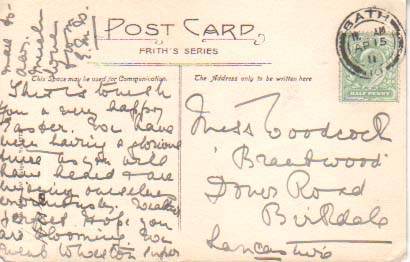 POST CARD
FRITH'S SERIES
This Space may be used for Communication.
The Address only to be written here
BATH
AP 15
11
HALF PENNY
This is to wish
you a very happy
Easter. We have
been having a glorious
time as you will
have heard & are
enjoying ourselves
enormously. Weather
perfect. Hope you
are blooming. We
went
Miss Woodcock
Brentwood
Dover Road
Birkdale
Lancashire
much
love